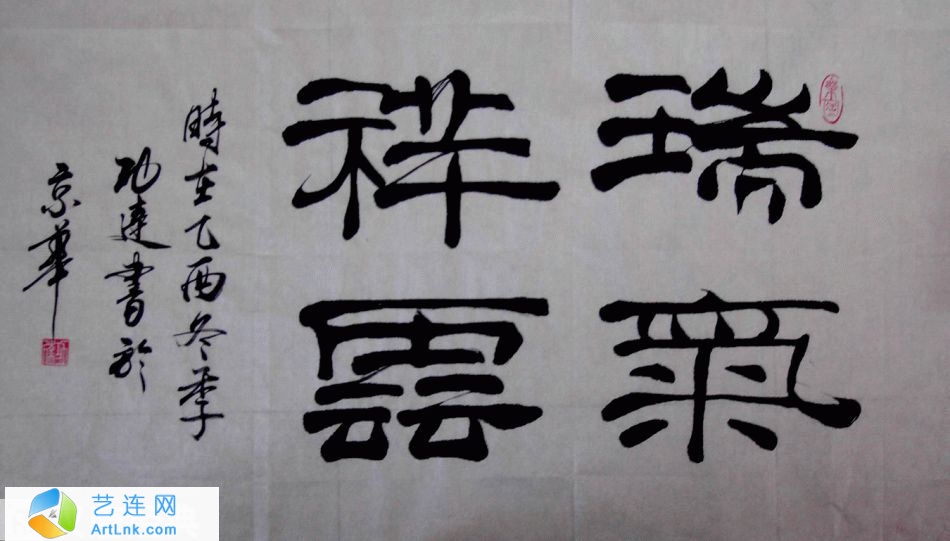 瑞氣
祥雲
時在乙酉冬季
功達書於
京華
艺连网
ArtLnk.com